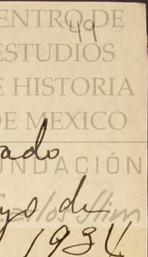 49
ENTRO DE
ESTUDIOS
E HISTORIA
DE MEXICO
ado
UNDACIÓN
yo de
Carlos Slim
1934